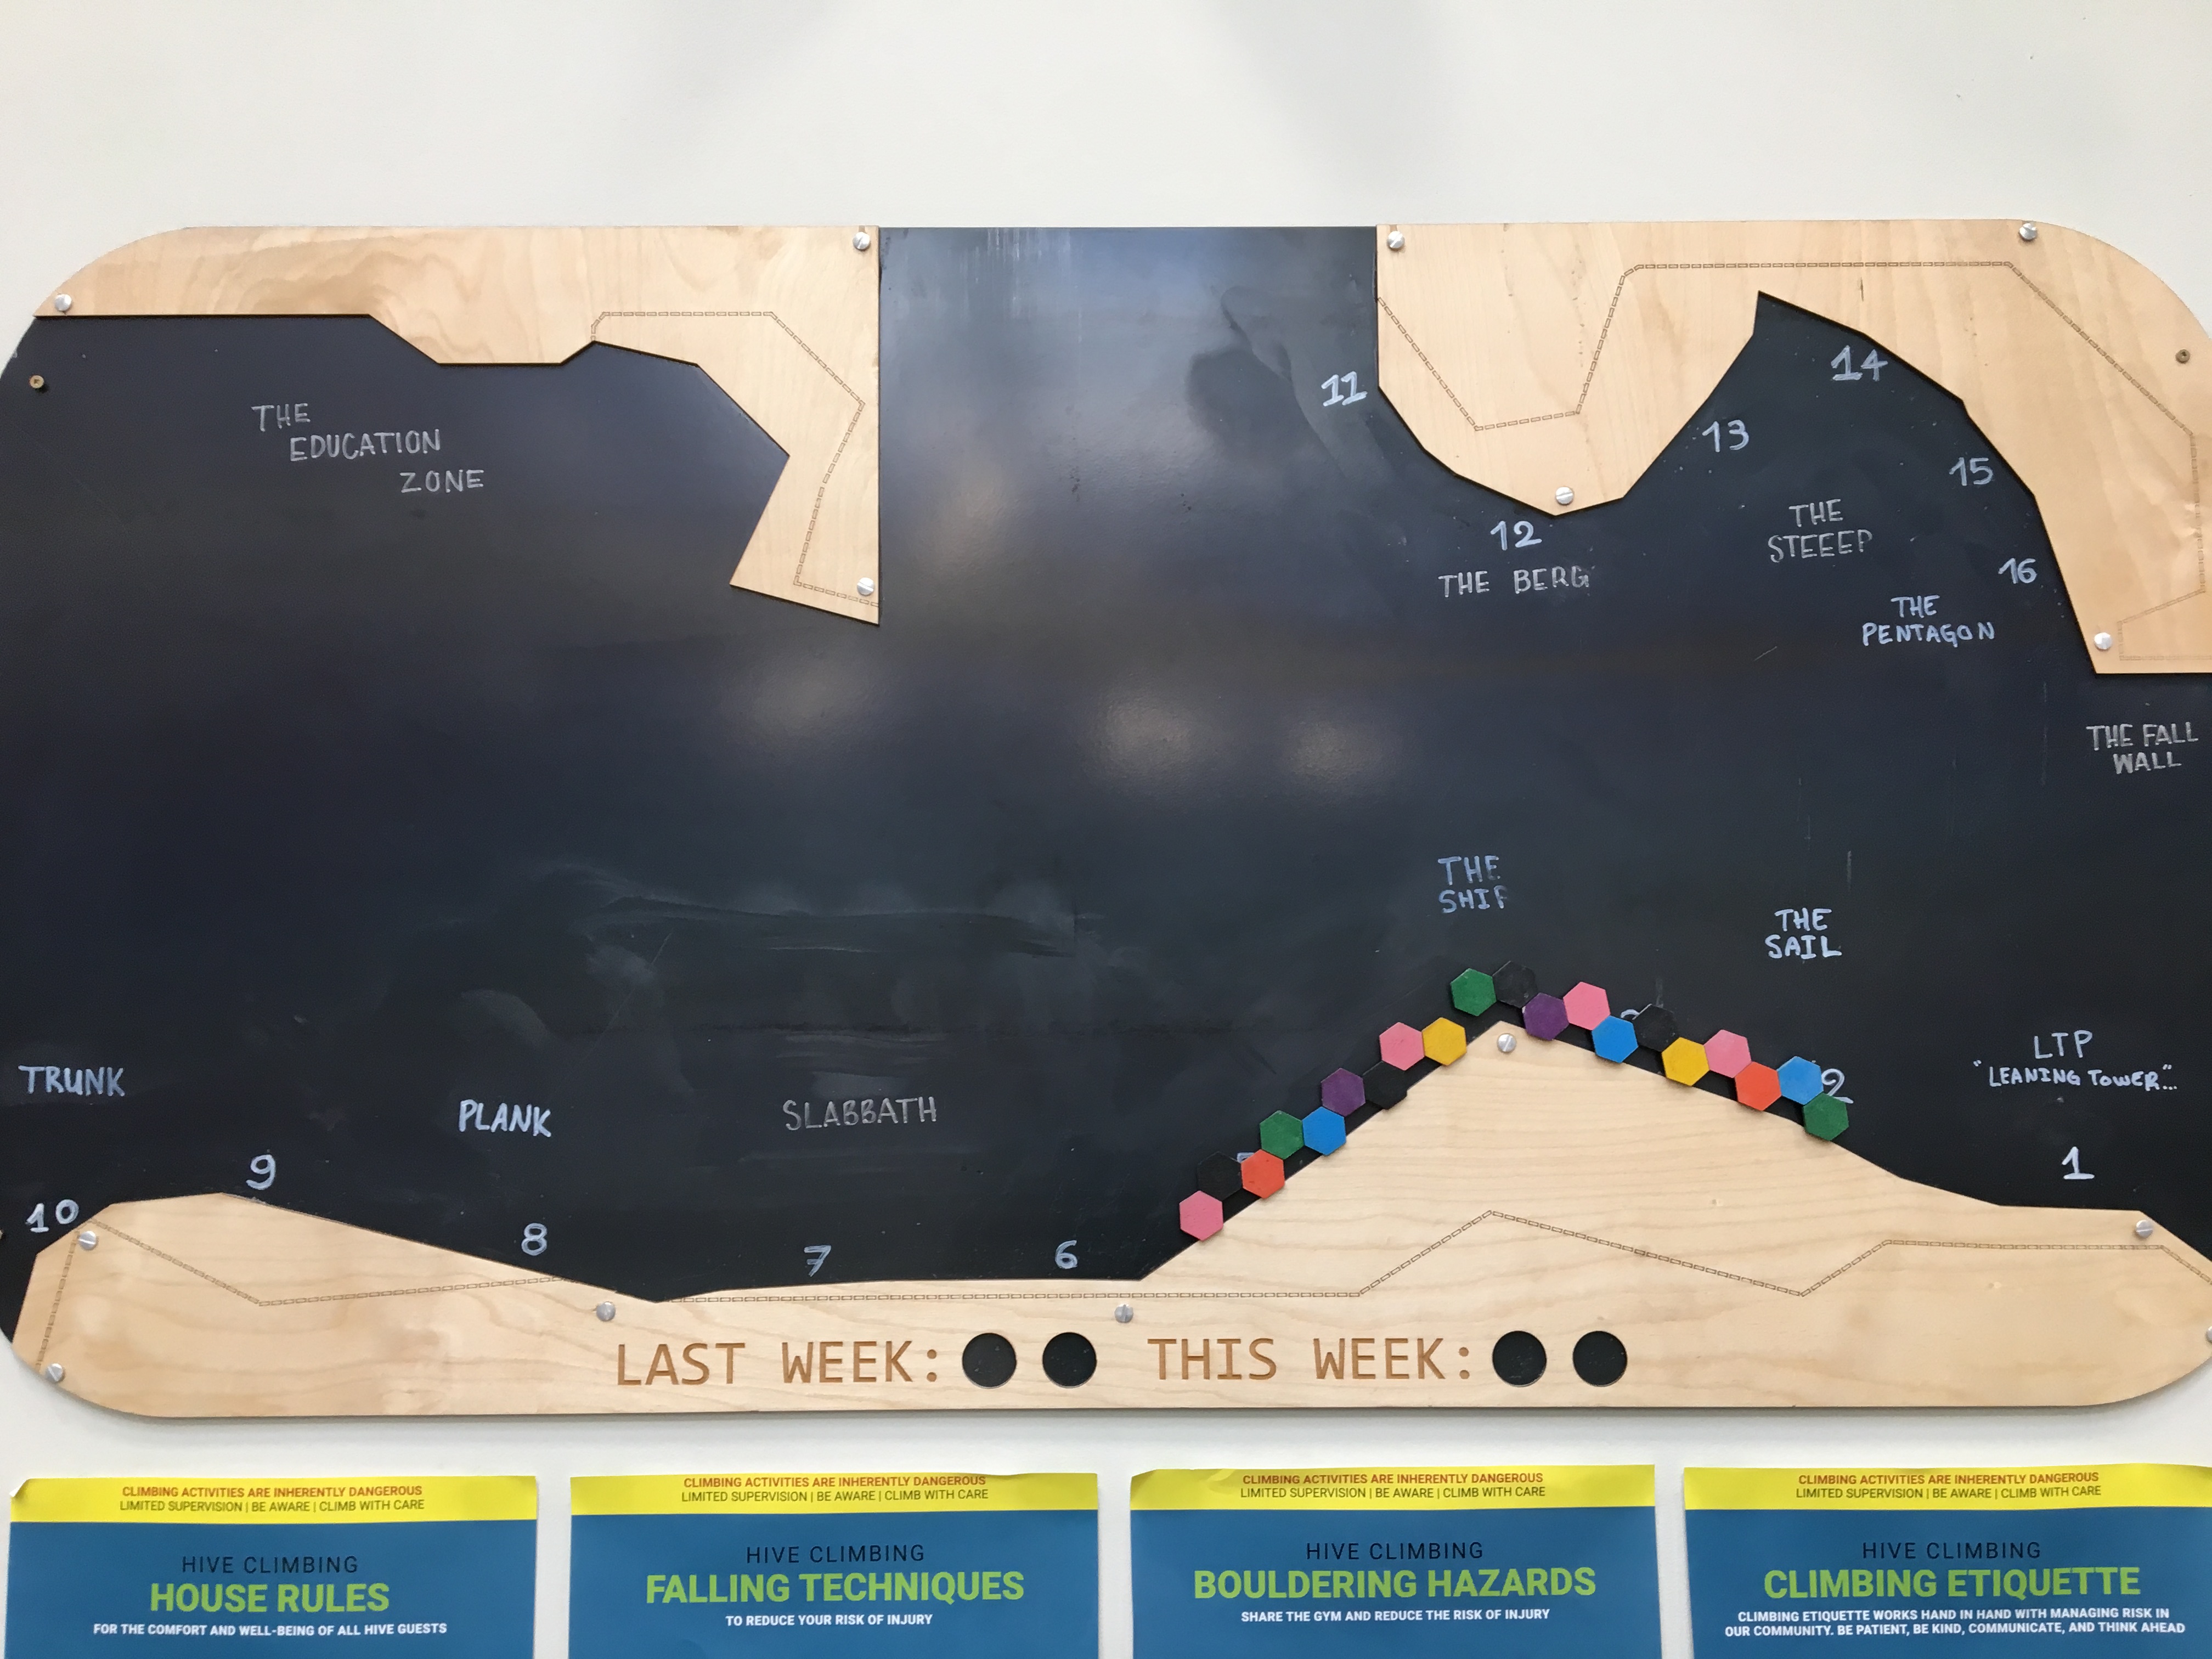 THE
EDUCATION
ZONE
11
12
THE BERG
13
14
THE
STEEEP
15
16
THE
PENTAGON
THE FALL
WALL
THE
SHIP
THE
SAIL
LTP
"LEANING TOWER"...
1
2
TRUNK
10
9
PLANK
8
SLABBATH
7
6
LAST WEEK:
THIS WEEK:
CLIMBING ACTIVITIES ARE INHERENTLY DANGEROUS
LIMITED SUPERVISION | BE AWARE | CLIMB WITH CARE
HIVE CLIMBING
HOUSE RULES
FOR THE COMFORT AND WELL-BEING OF ALL HIVE GUESTS
CLIMBING ACTIVITIES ARE INHERENTLY DANGEROUS
LIMITED SUPERVISION | BE AWARE | CLIMB WITH CARE
HIVE CLIMBING
FALLING TECHNIQUES
TO REDUCE YOUR RISK OF INJURY
CLIMBING ACTIVITIES ARE INHERENTLY DANGEROUS
LIMITED SUPERVISION | BE AWARE | CLIMB WITH CARE
HIVE CLIMBING
BOULDERING HAZARDS
SHARE THE GYM AND REDUCE THE RISK OF INJURY
CLIMBING ACTIVITIES ARE INHERENTLY DANGEROUS
LIMITED SUPERVISION | BE AWARE | CLIMB WITH CARE
HIVE CLIMBING
CLIMBING ETIQUETTE
CLIMBING ETIQUETTE WORKS HAND IN HAND WITH MANAGING RISK IN
OUR COMMUNITY. BE PATIENT, BE KIND, COMMUNICATE, AND THINK AHEAD